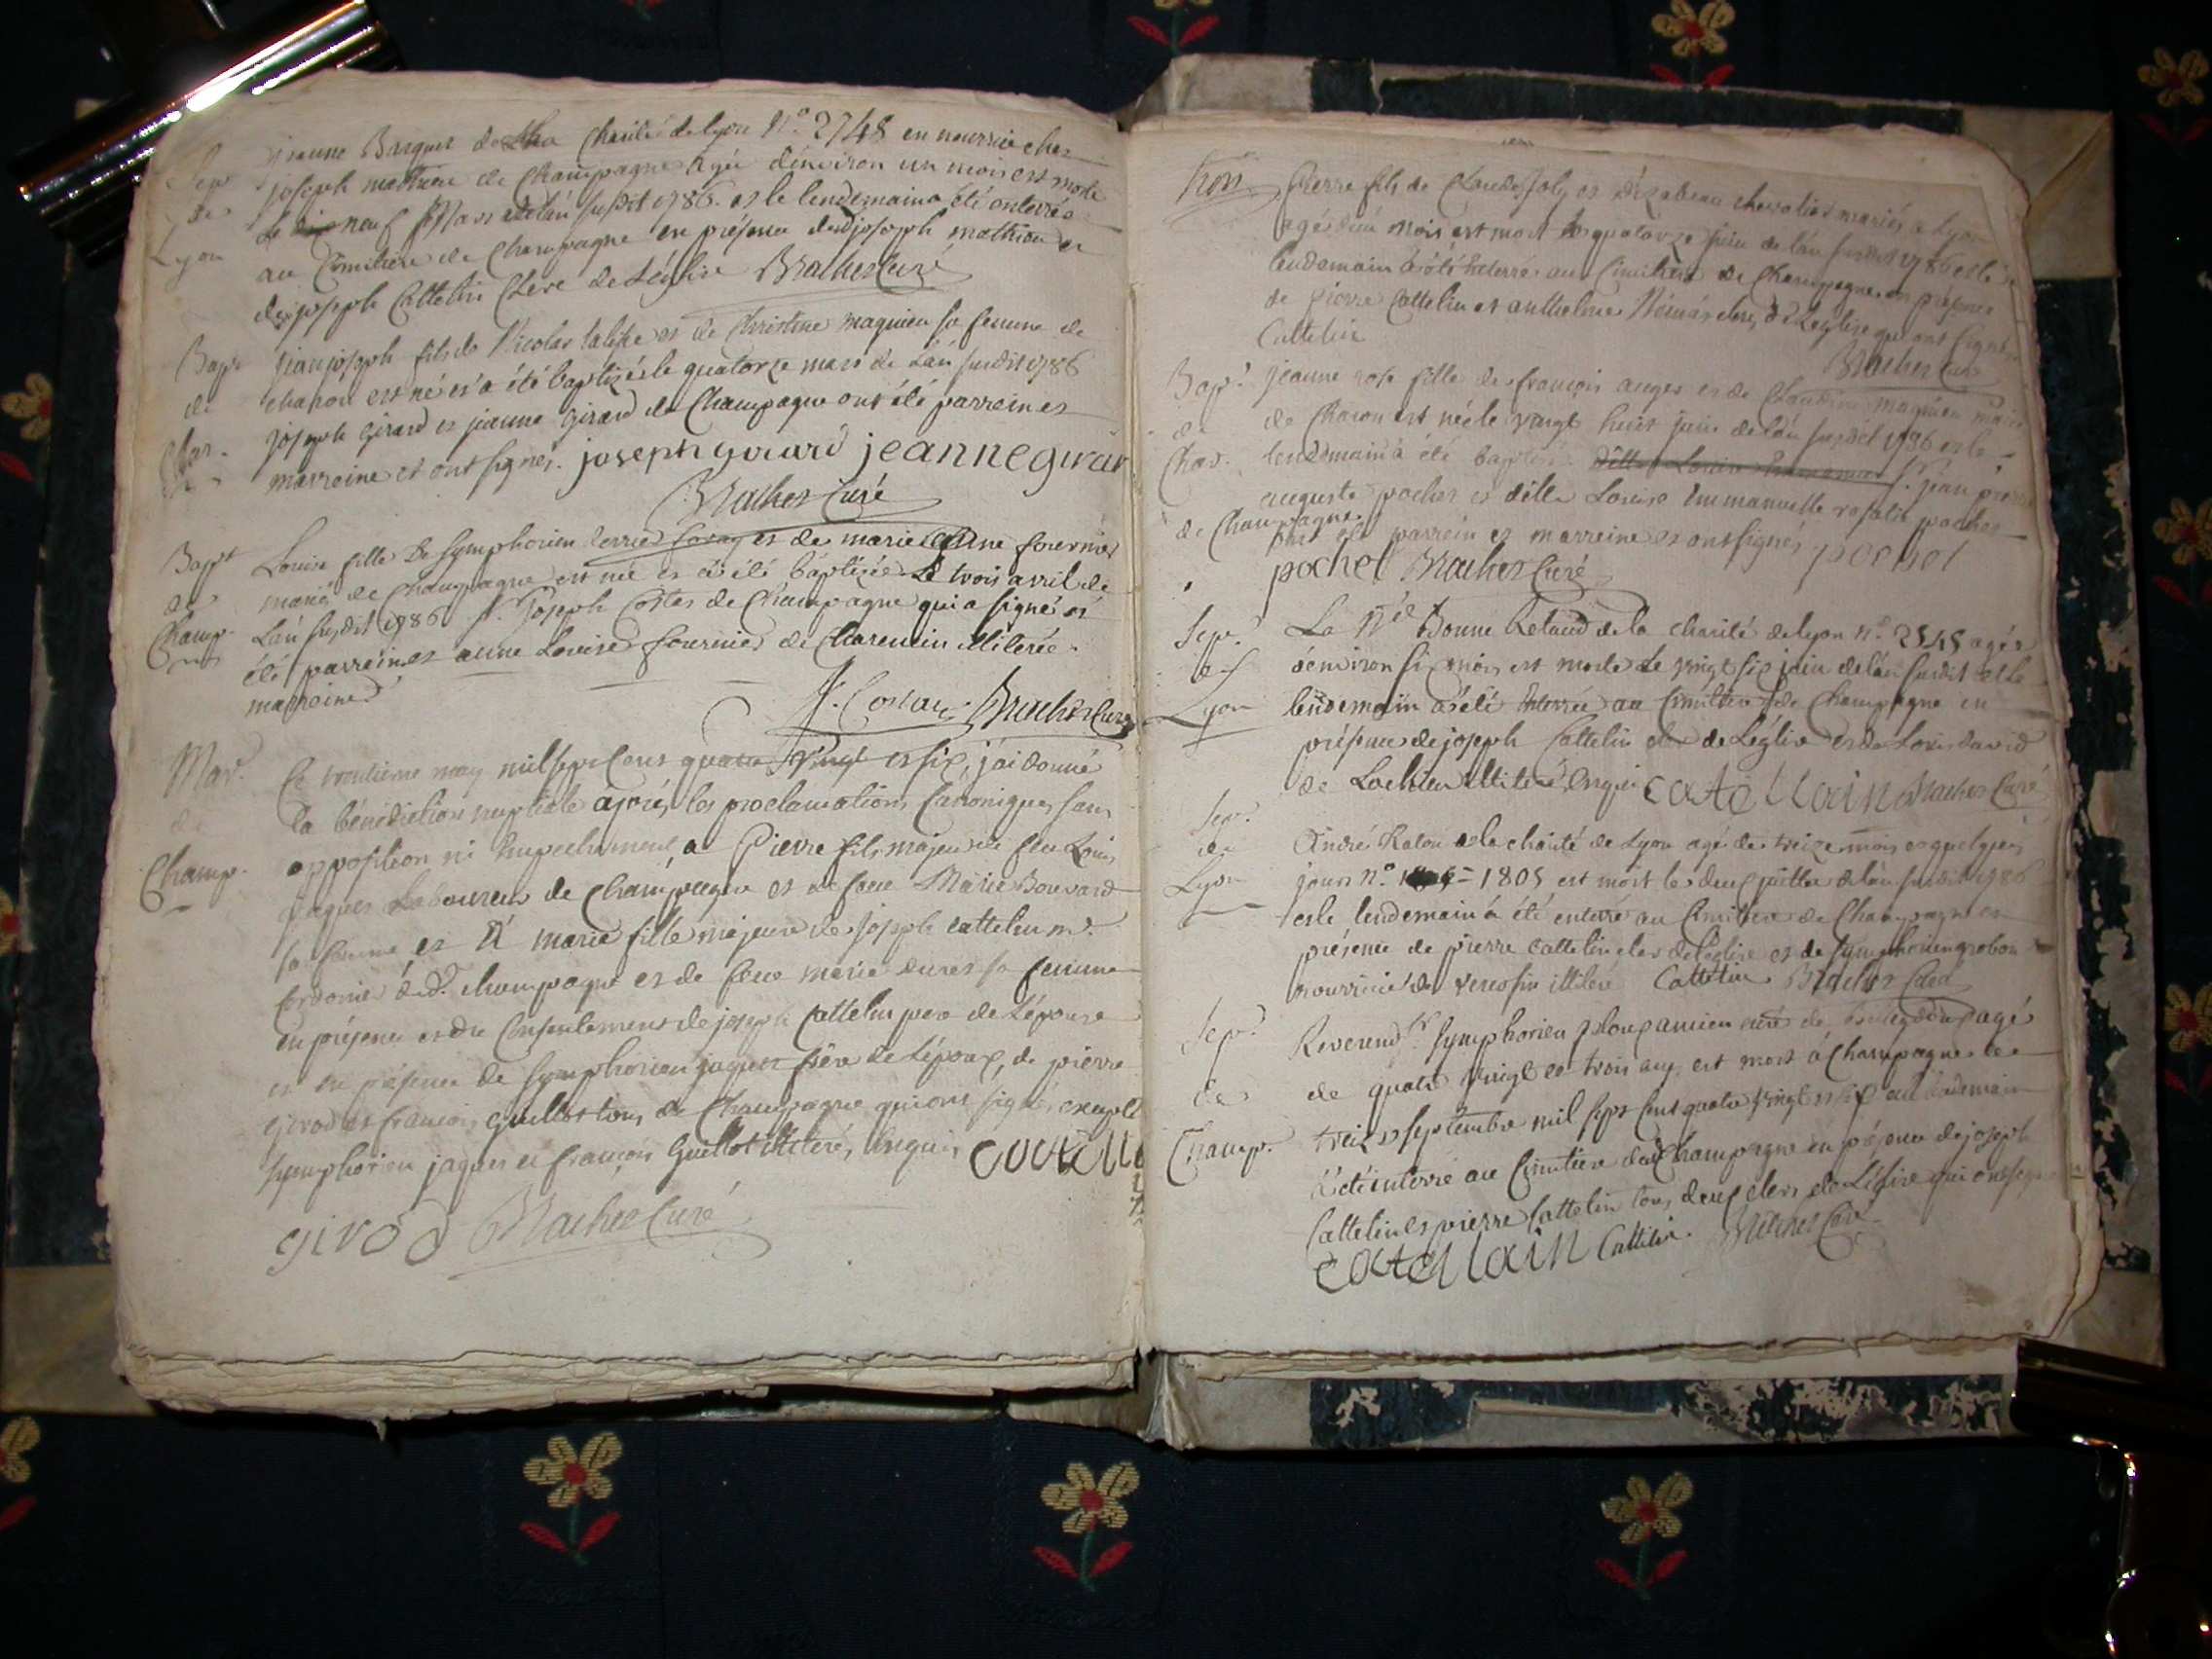 Sep.
de
Lyon
jeanne Barques de la Charité de lyon N.o 2748 en nourrice chez
joseph mathieu de Champagne agée d'environ un mois est morte
Le neuf Mars de l'an susdit 1786. et le lendemain a été enterrée
au Cimitiere de Champagne en présence dudjoseph mathieu et
de joseph Cattelin Clerc de L'églisse Bracher Curé
Bapt
de
Char.
jean joseph fils de Nicolas et de Christine maquieu sa femme de
charon est né et a été baptizé le quatorze mars de L'an susdit 1786
joseph Girard et jeanne Girard de Champagne ont été parrein et
marreine et ont signés. joseph girard jeanne girar
Bracher Curé
Bapt
de
Champ.
Louise fille de Symphorien et de marie anne fournier
mariés de Champagne est née et a été baptizée Le trois avril de
L'an susdit 1786 Sr. Joseph Costas de Champagne qui a signé et
été parrein et anne Louise fournier de Charencin illiterée
marreine
J. Costaz Bracher Curé
Mar.
de
Champ.
Ce trentieme may mil sept Cent quatre Vingt et six, j'ai donné
la bénédiction nuptiale aprés les proclamations Canoniques sans
opposition ni Empechement, a Pierre fils majeur de feu Louis
jaques Laboureur de Champagne et de feue Marie Bouvard
sa femme et A marie fille majeure de joseph cattelin m.
Cordonier dud. champagne et de feue marie sa femme
en présence et du Consentement de joseph Cattelin pere de L'épouse
et en présence de Symphorien jaques frère de L'époux, de pierre
girod et francois guillot tous de Champagne qui ont signés excepté
Symphorien jaques et francois Guillot illiterés Enquis
girod Bracher Curé
Pierre fils de Claude Joly et d'Izabeau chevalier mariés a Lyon
agé d'un mois est mort le quatorze juin de l'an susdit 1786 et le
lendemain a été Enterré au Cimitiere de Champagne en présence
de pierre Cattelin et anthelme clerc de L'eglise qui ont signé
Cattelin
Bracher Curé
Bap.t
de
Char.
jeanne rose fille de francois auger et de Claudine maquieu mariés
de Charon est née le vingt huit juin de l'an susdit 1786 et le
lendemain a été baptizée Sr. jean pierre
auguste pochet et dlle Louise Emmanuelle rosalie pochet
de Champagne
ont été parrein et marreine et ont signés pochet
pochet Bracher Curé
Sep.
de
Lyon
La N.ée Bonne Retaud de la charité de lyon n.o 2545 agée
d'environ six mois est morte Le vingt six juin de l'an susdit et le
lendemain a été Enterrée au Cimitiere de Champagne en
présence de joseph Cattelin clerc de L'églisse et de Louis david
de Lochieu illiteré Enquis catellain Bracher Curé
Sep.
de
Lyon
André Raton de la charité de Lyon agé de treize mois et quelques
jours N.o 1805 est mort le deux juillet de l'an susdit 1786
et le lendemain a été enterré au Cimitiere de Champagne en
présence de pierre cattelin clerc de L'église et de Symphorien grobon
nourricier de illiteré Cattelin Bracher Curé
Sep.
de
Champ.
Reverend Sr. Symphorien ancien curé de agé
de quatre Vingt et trois ans est mort à Champagne le
treize septembre mil sept Cent quatre Vingt et six et le lendemain
a été enterré au Cimitiere de Champagne en présence de joseph
Cattelin et pierre Cattelin tous deux clers de L'église qui ont signé
catellain Cattelin. Bracher Curé